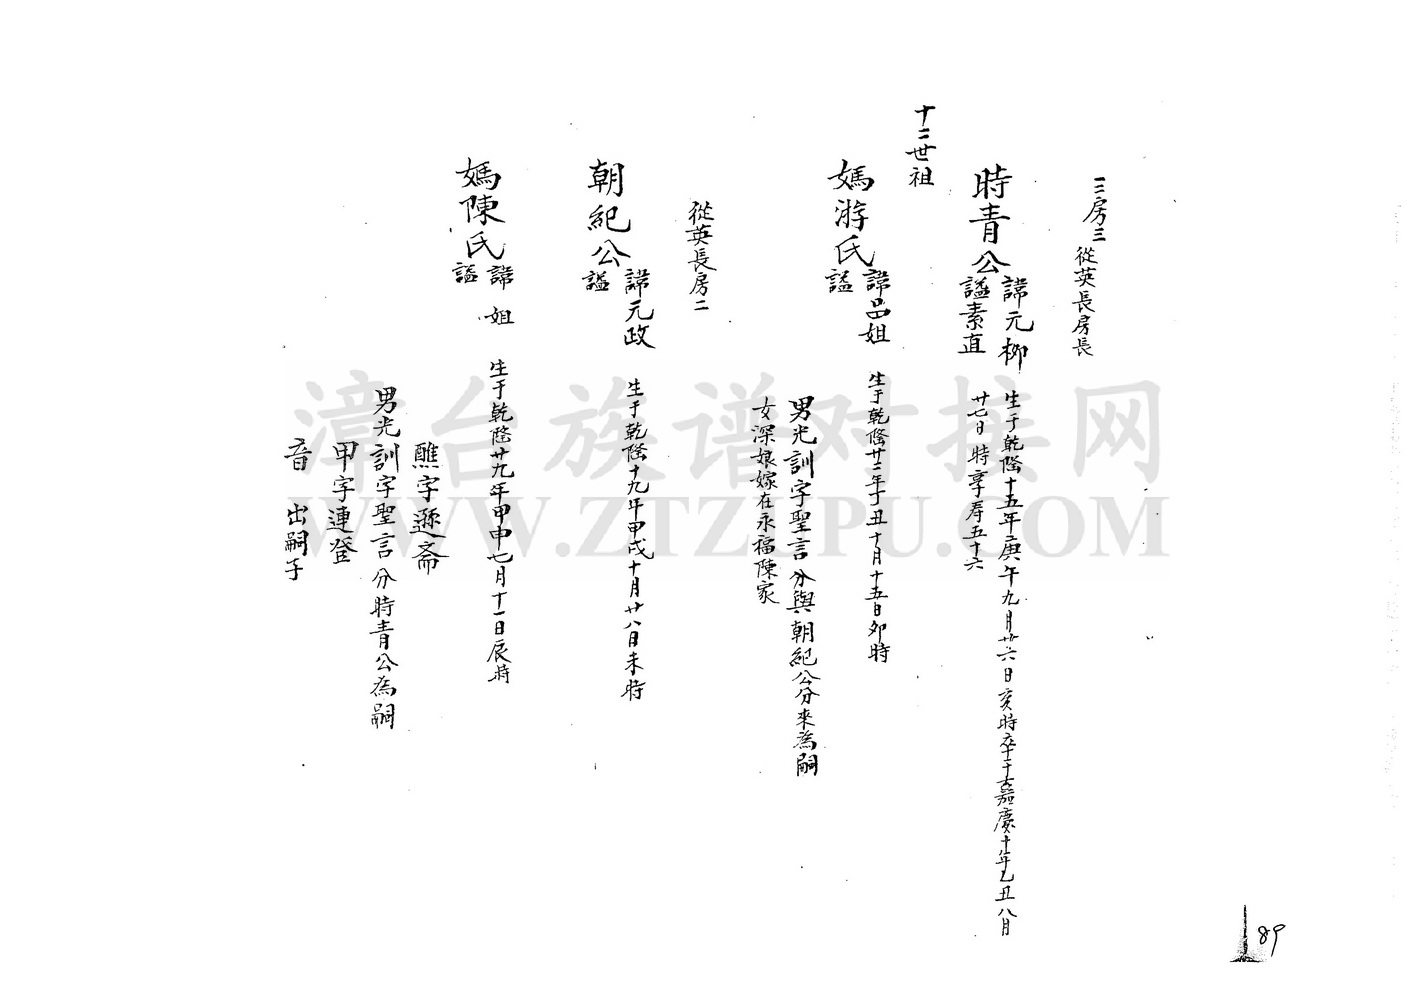 三房三 從英長房長
時青公 諱元柳 生于乾隆十五年庚午九月廿六日亥時卒于嘉慶十年乙丑八月
謚素直 廿七日時享寿五十六
十二世祖
媽游氏 諱吕姐 生于乾隆廿二年丁丑十月十五日夘時
謚
男光訓字聖言分與朝紀公分來為嗣
女深娘嫁在永福陳家
從英長房二
朝紀公 諱元政 生于乾隆十九年甲戌十月廿八日未時
謚
媽陳氏 諱 姐 生于乾隆廿九年甲申七月十一日辰時
謚
醮字遜齋
男光訓字聖言分時青公為嗣
甲字連登
音 出嗣子
漳台族谱对接网
WWW.ZTZUPU.COM
89